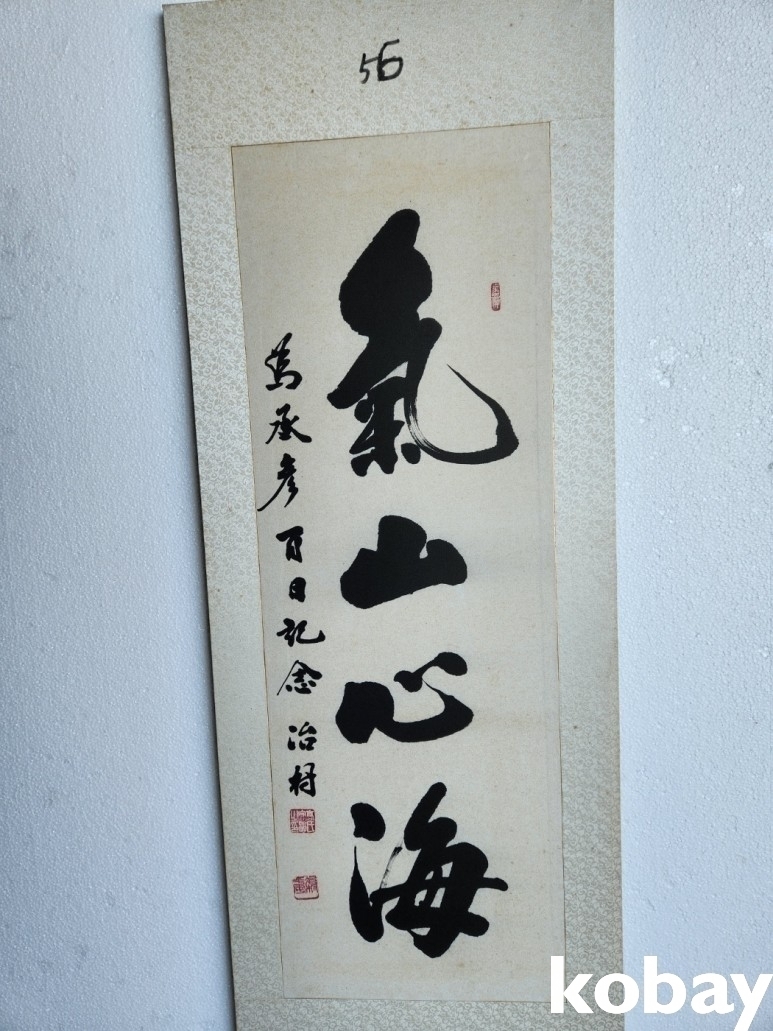 56
氣山心海
為丞彦百日記念 治村
kobay